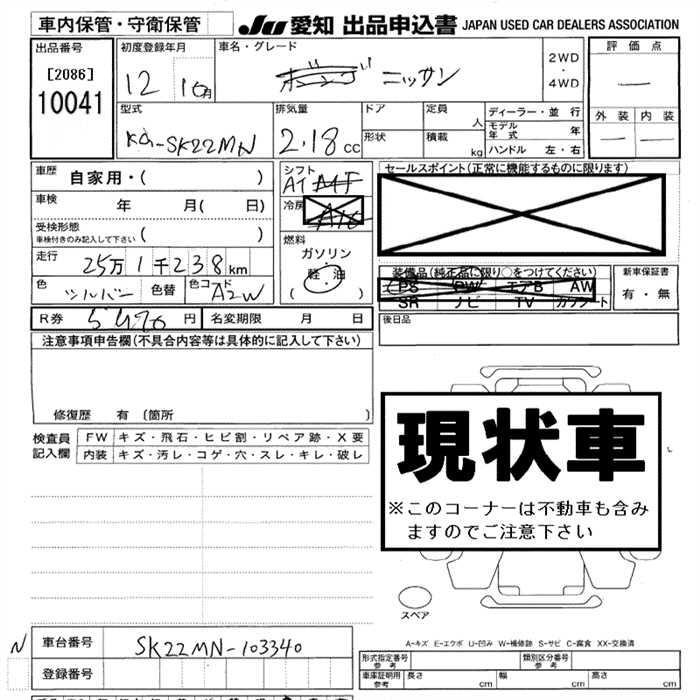 車内保管・守衛保管
JU 愛知 出品申込書 JAPAN USED CAR DEALERS ASSOCIATION
出品番号
[2086]
10041
初度登録年月
12 10月
車名・グレード
ニッサン
2WD
・
4WD
評価点
—
外装 内装
— —
型式
KG-SK22MN
排気量
2.18 cc
ドア
形状
定員
人
積載
kg
ディーラー・並行
モデル年式 年
ハンドル 左・右
車歴
自家用・( )
車検
年 月( 日)
受検形態
車検付きのみ記入して下さい ( )
走行
25万1千238km
色
シルバー
色替
色コード
A2W
シフト
AT
冷房
燃料
ガソリン
軽・油
( )
セールスポイント(正常に機能するものに限ります)
装備品(純正品に限り○をつけてください)
PS PW エアB AW
SR ナビ TV カワシート
新車保証書
有・無
R券
円
名変期限 月 日
後日品
注意事項申告欄(不具合内容等は具体的に記入して下さい)
修復歴 有 〔箇所 〕
検査員記入欄
FW キズ・飛石・ヒビ割・リペア跡・X要
内装 キズ・汚レ・コゲ・穴・スレ・キレ・破レ
現状車
※このコーナーは不動車も含み
ますのでご注意下さい
スペア
A-キズ E-エクボ U-凹み W-補修跡 S-サビ C-腐食 XX-交換済
N
車台番号
SK22MN-103340
登録番号
形式指定番号 参考
類別区分番号 参考
車庫証明用 参考
長さ cm
幅 cm
高さ cm